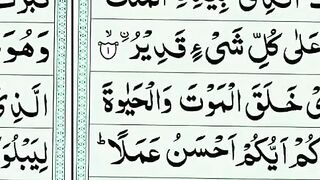 الَّذِىۡ بِيَدِهِ الۡمُلۡكُ
عَلٰى كُلِّ شَىۡءٍ قَدِيۡرُ ۙ﴿۱﴾
خَلَقَ الۡمَوۡتَ وَالۡحَيٰوةَ
كُمۡ اَيُّكُمۡ اَحۡسَنُ عَمَلًا ؕ
وَهُوَ
الَّذِىۡ
لِيَبۡلُوَ